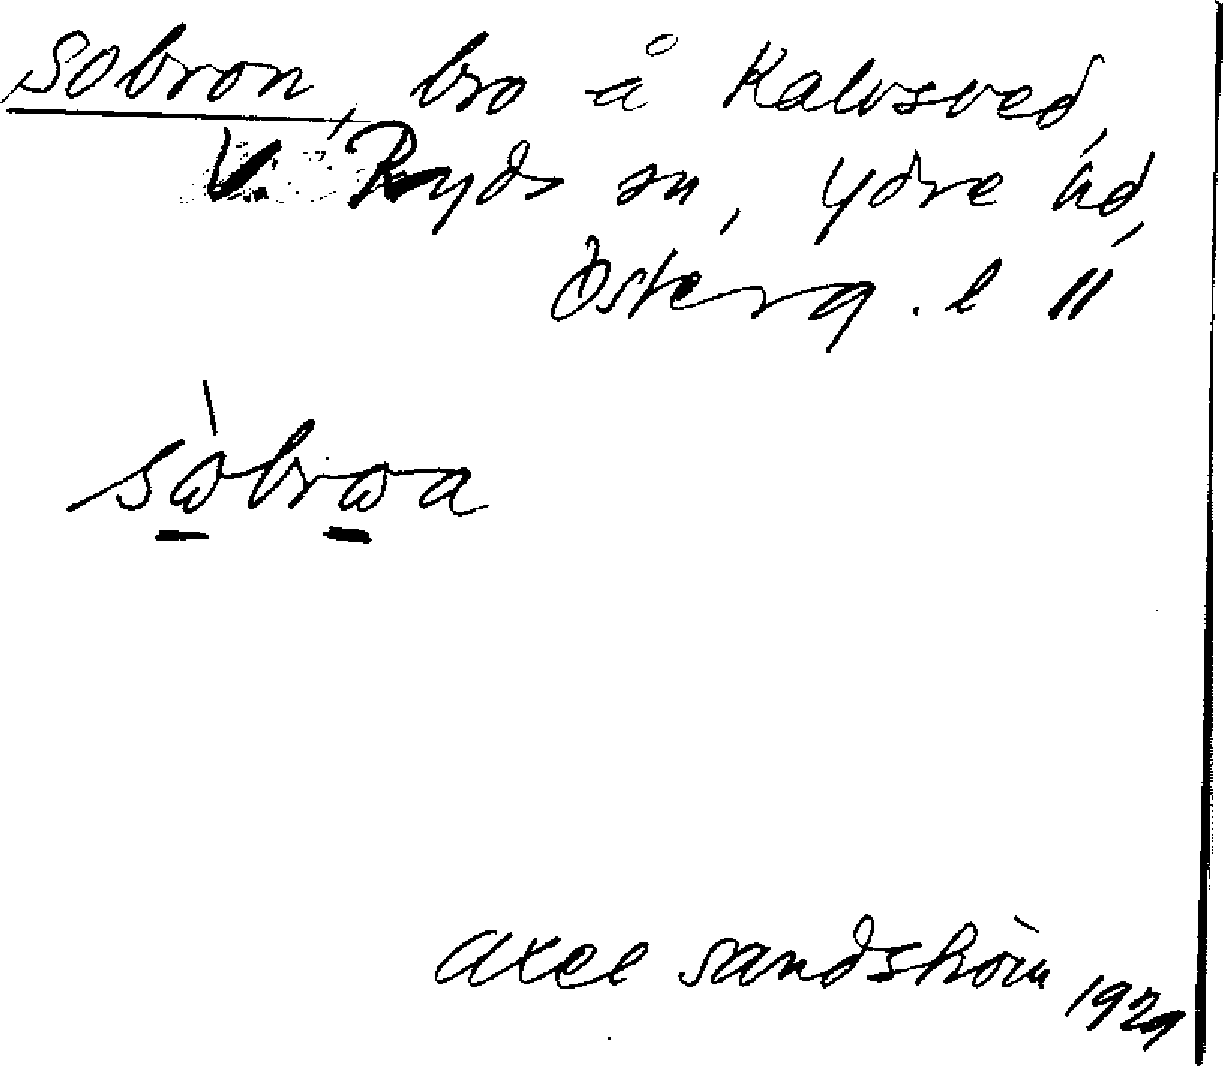 Sobron, bro å Kalvsved,
V. Ryds sn, Ydre hd,
Österg. l "
sòbrωa
Axel Sandström 1929